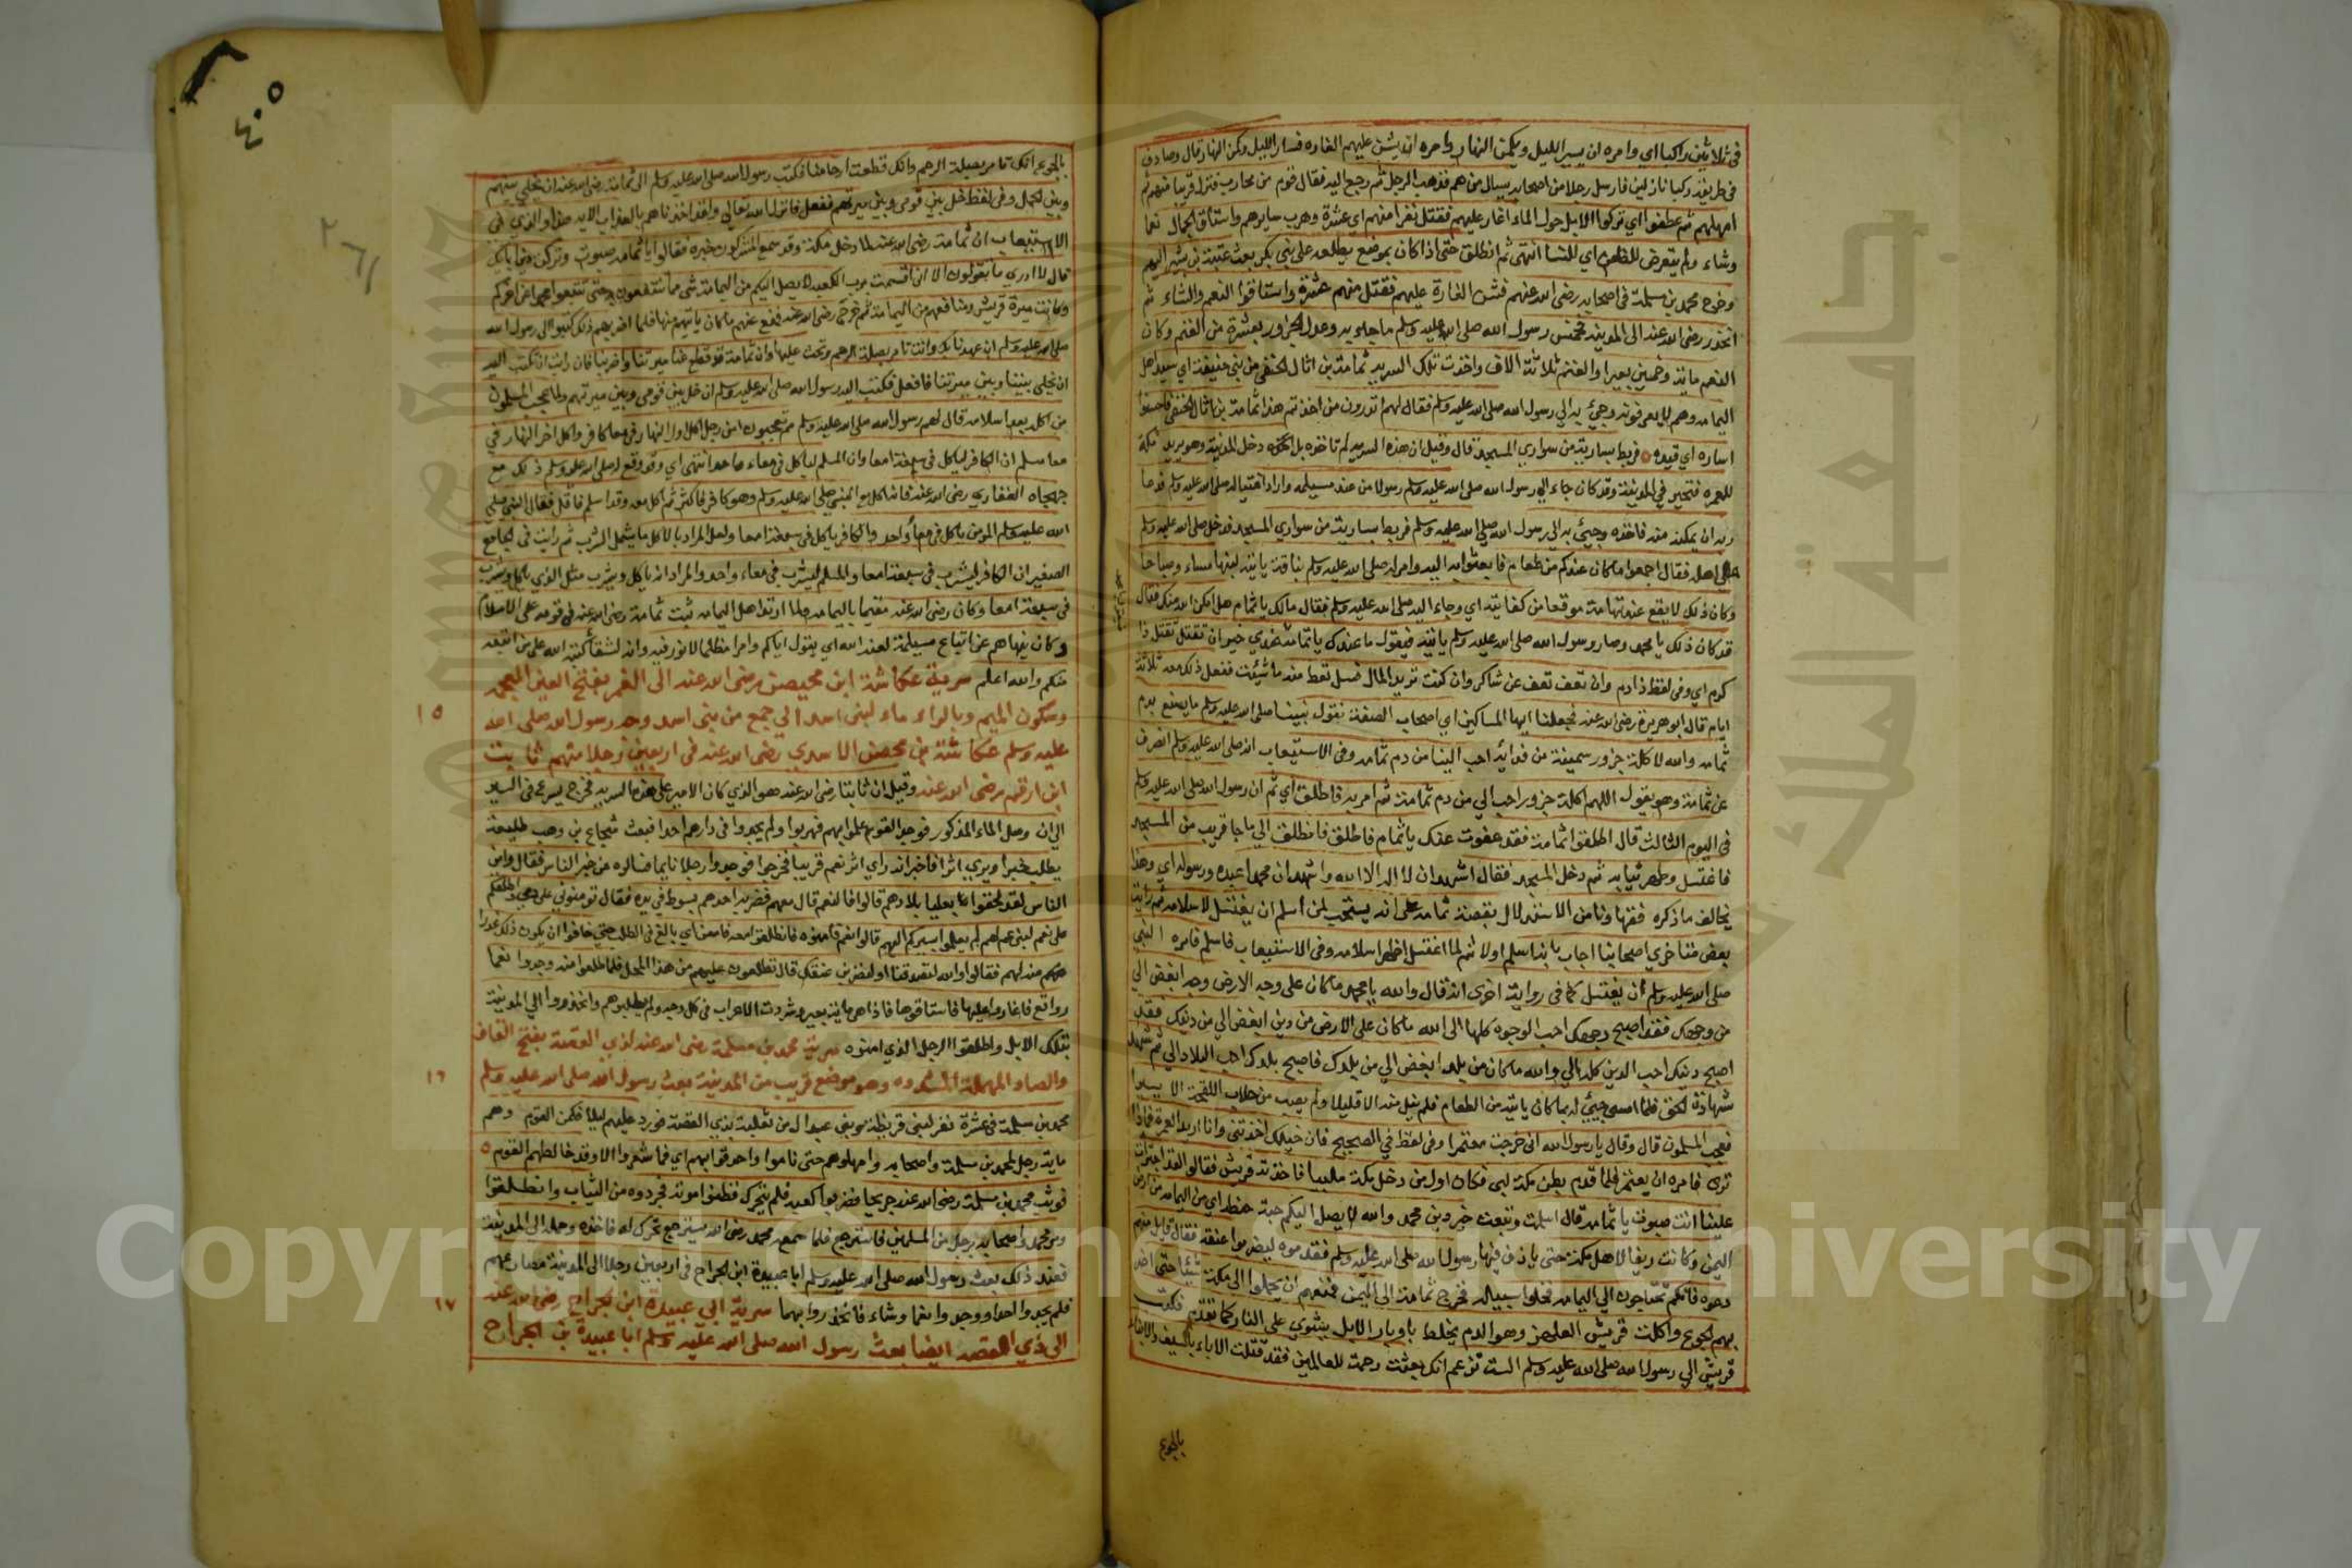 في ثلاثين راكبا اي وامره ان يسير الليل ويكمن النهار وامره ان يشن عليهم الغاره فسار الليل وكمن النهار قال وصادف
في طريقه ركبا نازلين فارسل رجلا من اصحابه يسال من هم فذهب الرجل ثم رجع اليه فقال قوم من محارب فنزل قريبا منهم ثم
امهلهم ثم عطفوا اي تركوا الابل حول الماء اغار عليهم فقتل نفرا منهم اي عشرة وهرب سايرهم واستاق الجمال نعما
وشاء ولم يتعرض للظعن اي للنسا انتهى ثم انطلق حتى اذا كان بموضع يطلعه على بني بكر بعث عتبة بن بشر اليهم
وخرج محمد بن مسلمة في اصحابه رضي الله عنهم فشن الغارة عليهم فقتل منهم عشرة واستاقوا النعم والشاء ثم
انحدر رضي الله عنه الى المدينه فخمس رسول الله صلى الله عليه وسلم ما جاء به وعدل الجزور بعشرة من الغنم وكان
النعم مائة وخمسين بعيرا والغنم ثلاثة الاف واخذت تلك السريه ثمامة بن اثال الحنفي من بني حنيفة اي سيد اهل
اليمامه وهم لا يعرفونه وجيء به الي رسول الله صلى الله عليه وسلم فقال لهم اتدرون من اخذتم هذا ثمامة بن اثال الحنفي فاحسنوا
اساره اي قيده فربط بسارية من سواري المسجد قال وقيل ان هذه السريه لم تاخذه بل دخل المدينة وهو يريد مكة
للعمره فتحير في المدينة وقد كان جاء الي رسول الله صلى الله عليه وسلم رسولا من عند مسيلمه واراد اغتياله صلى الله عليه وسلم فدعا
ربه ان يمكنه منه فاخذه وجيء به الي رسول الله صلى الله عليه وسلم فربط بسارية من سواري المسجد فدخل صلى الله عليه وسلم
على اهله فقال اجمعوا ما كان عندكم من طعام فابعثوا به اليه وامر له صلى الله عليه وسلم بناقة ياتيه لبنها مساء وصباحا
وكان ذلك لا يقع عند ثمامة موقعا من كفايته اي وجاء اليه صلى الله عليه وسلم فقال مالك يا ثمام هل امكن الله منك فقال
قد كان ذلك يا محمد وصار رسول الله صلى الله عليه وسلم ياتيه فيقول ما عندك يا ثمامة فيقول عندي خير ان تقتل تقتل ذا
كرم اي وفي لفظ ذا دم وان تعف تعف عن شاكر وان كنت تريد المال فسل تعط منه ما شئت ففعل ذلك معه ثلاثة
ايام قال ابو هريرة رضي الله عنه فجعلنا ايها المساكين اي اصحاب الصفة نقول نبينا صلى الله عليه وسلم ما يصنع بدم
ثمامه والله لاكلة جزور سمينة من فدائه احب الينا من دم ثمامه وفي الاستيعاب انه صلى الله عليه وسلم انصرف
عن ثمامة وهو يقول اللهم اكلة جزور احب الي من دم ثمامة ثم امر به فاطلق اي ثم ان رسول الله صلى الله عليه وسلم
في اليوم الثالث قال اطلقوا ثمامة فقد عفوت عنك يا ثمام فاطلق فانطلق الي ما جا قريب من المسجد
فاغتسل وطهر ثيابه ثم دخل المسجد فقال اشهد ان لا اله الا الله واشهد ان محمدا عبده ورسوله اي وهذا
يخالف ما ذكره فقهاونا من الاستدلال بقصة ثمامه على انه يستحب لمن اسلم ان يغتسل لاسلامه ثم رايت
بعض متاخري اصحابنا اجاب بانه اسلم اولا ثم لما اغتسل اظهر اسلامه وفي الاستيعاب فاسلم فامره النبي
صلى الله عليه وسلم ان يغتسل كما في رواية اخرى انه قال والله يا محمد ما كان على وجه الارض وجه ابغض الي
من وجهك فقد اصبح وجهك احب الوجوه كلها الى الله ما كان على الارض من دين ابغض الي من دينك فقد
اصبح دينك احب الدين كله الي والله ما كان من بلد ابغض الي من بلدك فاصبح بلدك احب البلاد الي ثم شهد
شهادة الحق فلما امسى جيء له بما كان ياتيه من الطعام فلم ينل منه الا قليلا ولم يصب من حلاب اللقحة الا يسيرا
فعجب المسلمون قال وقال يا رسول الله اني خرجت معتمرا وفي لفظ في الصحيح فان خيلك اخذتني وانا اريد العمرة فماذا
ترى فامره ان يعتمر فلما قدم بطن مكة لبى فكان اول من دخل مكة ملبيا فاخذته قريش فقالوا لقد اجترات
علينا انت صبوت يا ثمامه قال اسلمت وتبعت خير دين محمد والله لا يصل اليكم حبة حنطه اي من اليمامه من ارض
اليمن وكانت ريفا لاهل مكة حتى ياذن فيها رسول الله صلى الله عليه وسلم فقدموه ليضربوا عنقه فقال قايل منهم
دعوه فانكم تحتاجون الي اليمامه فخلوا سبيله فخرج ثمامة الى اليمن فمنعهم ان يحملوا الى مكة شيئا حتى اضر
بهم الجوع واكلت قريش العلهز وهو الدم يخلط باوبار الابل يشوي على النار كما تقدم فكتبت
قريش الي رسول الله صلى الله عليه وسلم الست تزعم انك بعثت رحمة للعالمين فقد قتلت الاباء بالسيف والابناء
بالجوع
٤٠٥
بالجوع انك تامر بصلة الرحم وانك قطعت ارحامنا فكتب رسول الله صلى الله عليه وسلم الى ثمامة رضي الله عنه ان يخلي بينهم
وبين الحمل وفي لفظ خل بين قومي وبين ميرتهم ففعل فانزل الله تعالي ولقد اخذناهم بالعذاب الاية هذا والذي في
الاستيعاب ان ثمامة رضي الله عنه لما دخل مكة وقد سمع المشركون خبره فقالوا يا ثمامه صبوت وتركت دين ابايك
قال لا ادري ما تقولون الا اني اقسمت برب الكعبه لا يصل اليكم من اليمامة شي مما تنتفعون به حتى تتبعوا محمدا عن اخركم
وكانت ميرة قريش ومنافعهم من اليمامة ثم خرج رضي الله عنه فمنع عنهم ما كان ياتيهم منها فلما اضر بهم ذلك كتبوا الى رسول الله
صلى الله عليه وسلم ان عهدنا بك وانت تامر بصلة الرحم وتحث عليها وان ثمامة قد قطع عنا ميرتنا واضر بنا فان رايت ان تكتب اليه
ان يخلي بيننا وبين ميرتنا فافعل فكتب اليه رسول الله صلى الله عليه وسلم ان خل بين قومي وبين ميرتهم ولما عجب المسلمون
من اكله بعد اسلامه قال لهم رسول الله صلى الله عليه وسلم مم تعجبون امن رجل اكل اول النهار في معا كافر واكل اخر النهار في
معا مسلم ان الكافر لياكل في سبعة امعا وان المسلم لياكل في معاء واحد انتهى اي وقد وقع له صلى الله عليه وسلم ذلك مع
جهجاه الغفاري رضي الله عنه فانه اكل مع النبي صلى الله عليه وسلم وهو كافر فاكثر ثم اكل معه وقد اسلم فاقل فقال النبي صلى
الله عليه وسلم المومن ياكل في معا واحد والكافر ياكل في سبعة امعا ولعل المراد بالاكل ما يشمل الشرب ثم رايت في الجامع
الصغير ان الكافر ليشرب في سبعة امعا والمسلم ليشرب في معاء واحد والمراد انه ياكل ويشرب مثل الذي ياكل ويشرب
في سبعة امعا وكان رضي الله عنه مقيما باليمامه ولما ارتد اهل اليمامه ثبت ثمامة رضي الله عنه في قومه على الاسلام
وكان ينهاهم عن اتباع مسيلمة لعنه الله اي يقول اياكم وامرا مظلما لا نور فيه وانه لشقا كتبه الله على من اتبعه
منكم والله اعلم سرية عكاشة ابن محيصن رضي الله عنه الى الغمر بفتح الغين المعجمه
وسكون الميم وبالراء ماء لبني اسد الي جمع من بني اسد وجه رسول الله صلى الله
١٥
عليه وسلم عكاشة بن محصن الاسدي رضي الله عنه في اربعين رجلا منهم ثابت
ابن ارقم رضي الله عنه وقيل ان ثابتا رضي الله عنه هو الذي كان الامير على هذه السريه فخرج يسرع في السير
الي ان وصل الماء المذكور فوجد القوم علموا بهم فهربوا ولم يجدوا في دارهم احدا فبعث شجاع بن وهب طليعة
يطلب خبرا ويري اثرا فاخبر انه راي اثر نعم قريبا فخرجوا فوجدوا رجلا نايما فسالوه من خبر الناس فقال واين
الناس لقد لحقوا بعليا بلادهم قالوا فالنعم قال معهم فضربه احدهم بسوط في يده فقال تومنوني على دمي واطلعكم
على نعم لبني عم لهم لم يعلموا بسيركم اليهم قالوا نعم فامنوه فانطلقوا معه فامعن اي بالغ في الطلب حتى خافوا ان يكون ذلك غدرا
منه لهم فقالوا والله لتصدقنا او لنضربن عنقك قال تطلعون عليهم من هذا المحل فلما طلعوا منه وجدوا نعما
رواتع فاغاروا عليها فاستاقوها فاذا هي مائة بعير وشردت الاعراب في كل وجه ولم يطلبوهم وانحدروا الي المدينة
بتلك الابل واطلقوا الرجل الذي امنوه سرية محمد بن مسلمة رضي الله عنه لذي القصة بفتح القاف
والصاد المهملة المشدده وهو موضع قريب من المدينة بعث رسول الله صلى الله عليه وسلم
١٦
محمد بن مسلمة في عشرة نفر لبني قريظة وبني عوال من ثعلبة بذي القصة فورد عليهم ليلا فكمن القوم وهم
ماية رجل لمحمد بن مسلمة واصحابه وامهلوهم حتى ناموا واحدقوا بهم اي فما شعروا الا وقد خالطهم القوم
فوثب محمد بن مسلمة رضي الله عنه جريحا فضربوا كعبه فلم يتحرك فظنوا موته فجردوه من الثياب وانطلقوا
ومر بمحمد واصحابه رجل من المسلمين فاسترجع فلما سمعه محمد رضي الله يسترجع تحرك له فاخذه وحمله الى المدينة
فعند ذلك بعث رسول الله صلى الله عليه وسلم ابا عبيدة ابن الجراح في اربعين رجلا الى المدينة مصارعهم
فلم يجدوا احدا ووجدوا نعما وشاء فانحدروا بهما سرية ابي عبيدة ابن الجراح رضي الله عنه
١٧
الى ذي القصه ايضا بعث رسول الله صلى الله عليه وسلم ابا عبيدة بن الجراح
Copyright © King Saud University
جامعة الملك سعود